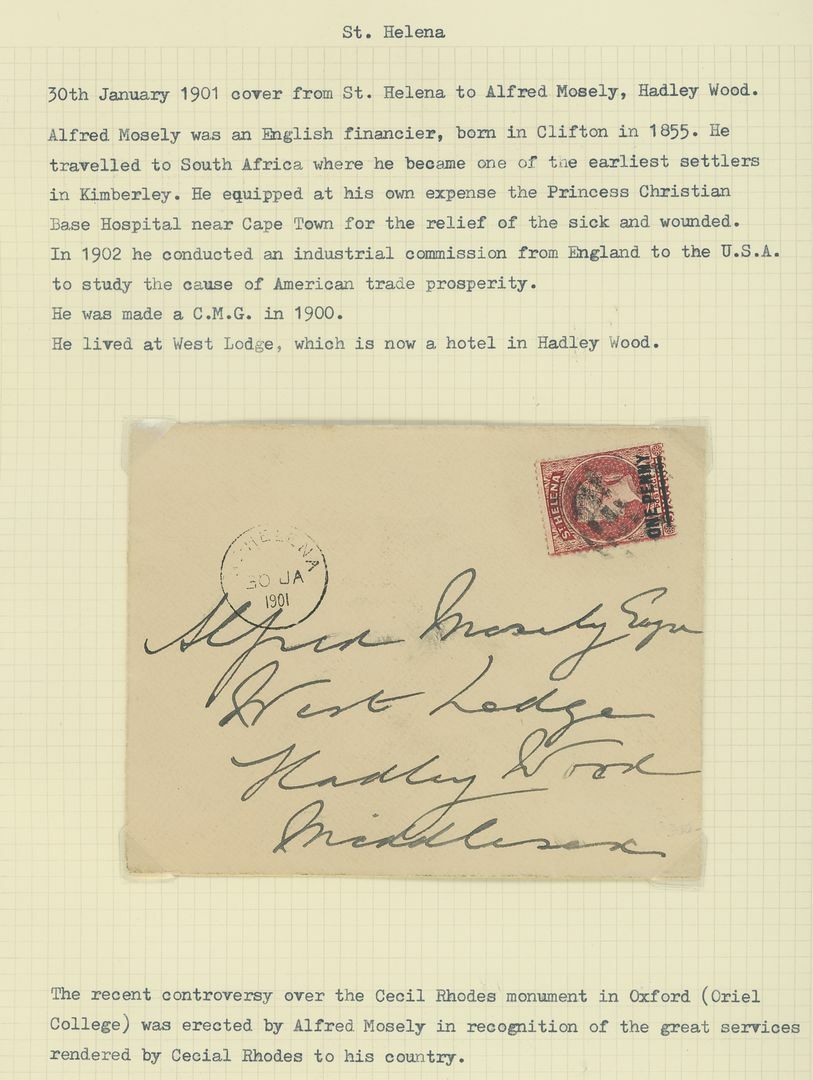 St. Helena
30th January 1901 cover from St. Helena to Alfred Mosely, Hadley Wood.
Alfred Mosely was an English financier, born in Clifton in 1855. He
travelled to South Africa where he became one of the earliest settlers
in Kimberley. He equipped at his own expense the Princess Christian
Base Hospital near Cape Town for the relief of the sick and wounded.
In 1902 he conducted an industrial commission from England to the U.S.A.
to study the cause of American trade prosperity.
He was made a C.M.G. in 1900.
He lived at West Lodge, which is now a hotel in Hadley Wood.
ST HELENA
ONE PENNY
ST HELENA
30 JA
1901
Alfred Mosely Esqre
West Lodge
Hadley Wood
Middlesex
The recent controversy over the Cecil Rhodes monument in Oxford (Oriel
College) was erected by Alfred Mosely in recognition of the great services
rendered by Cecial Rhodes to his country.